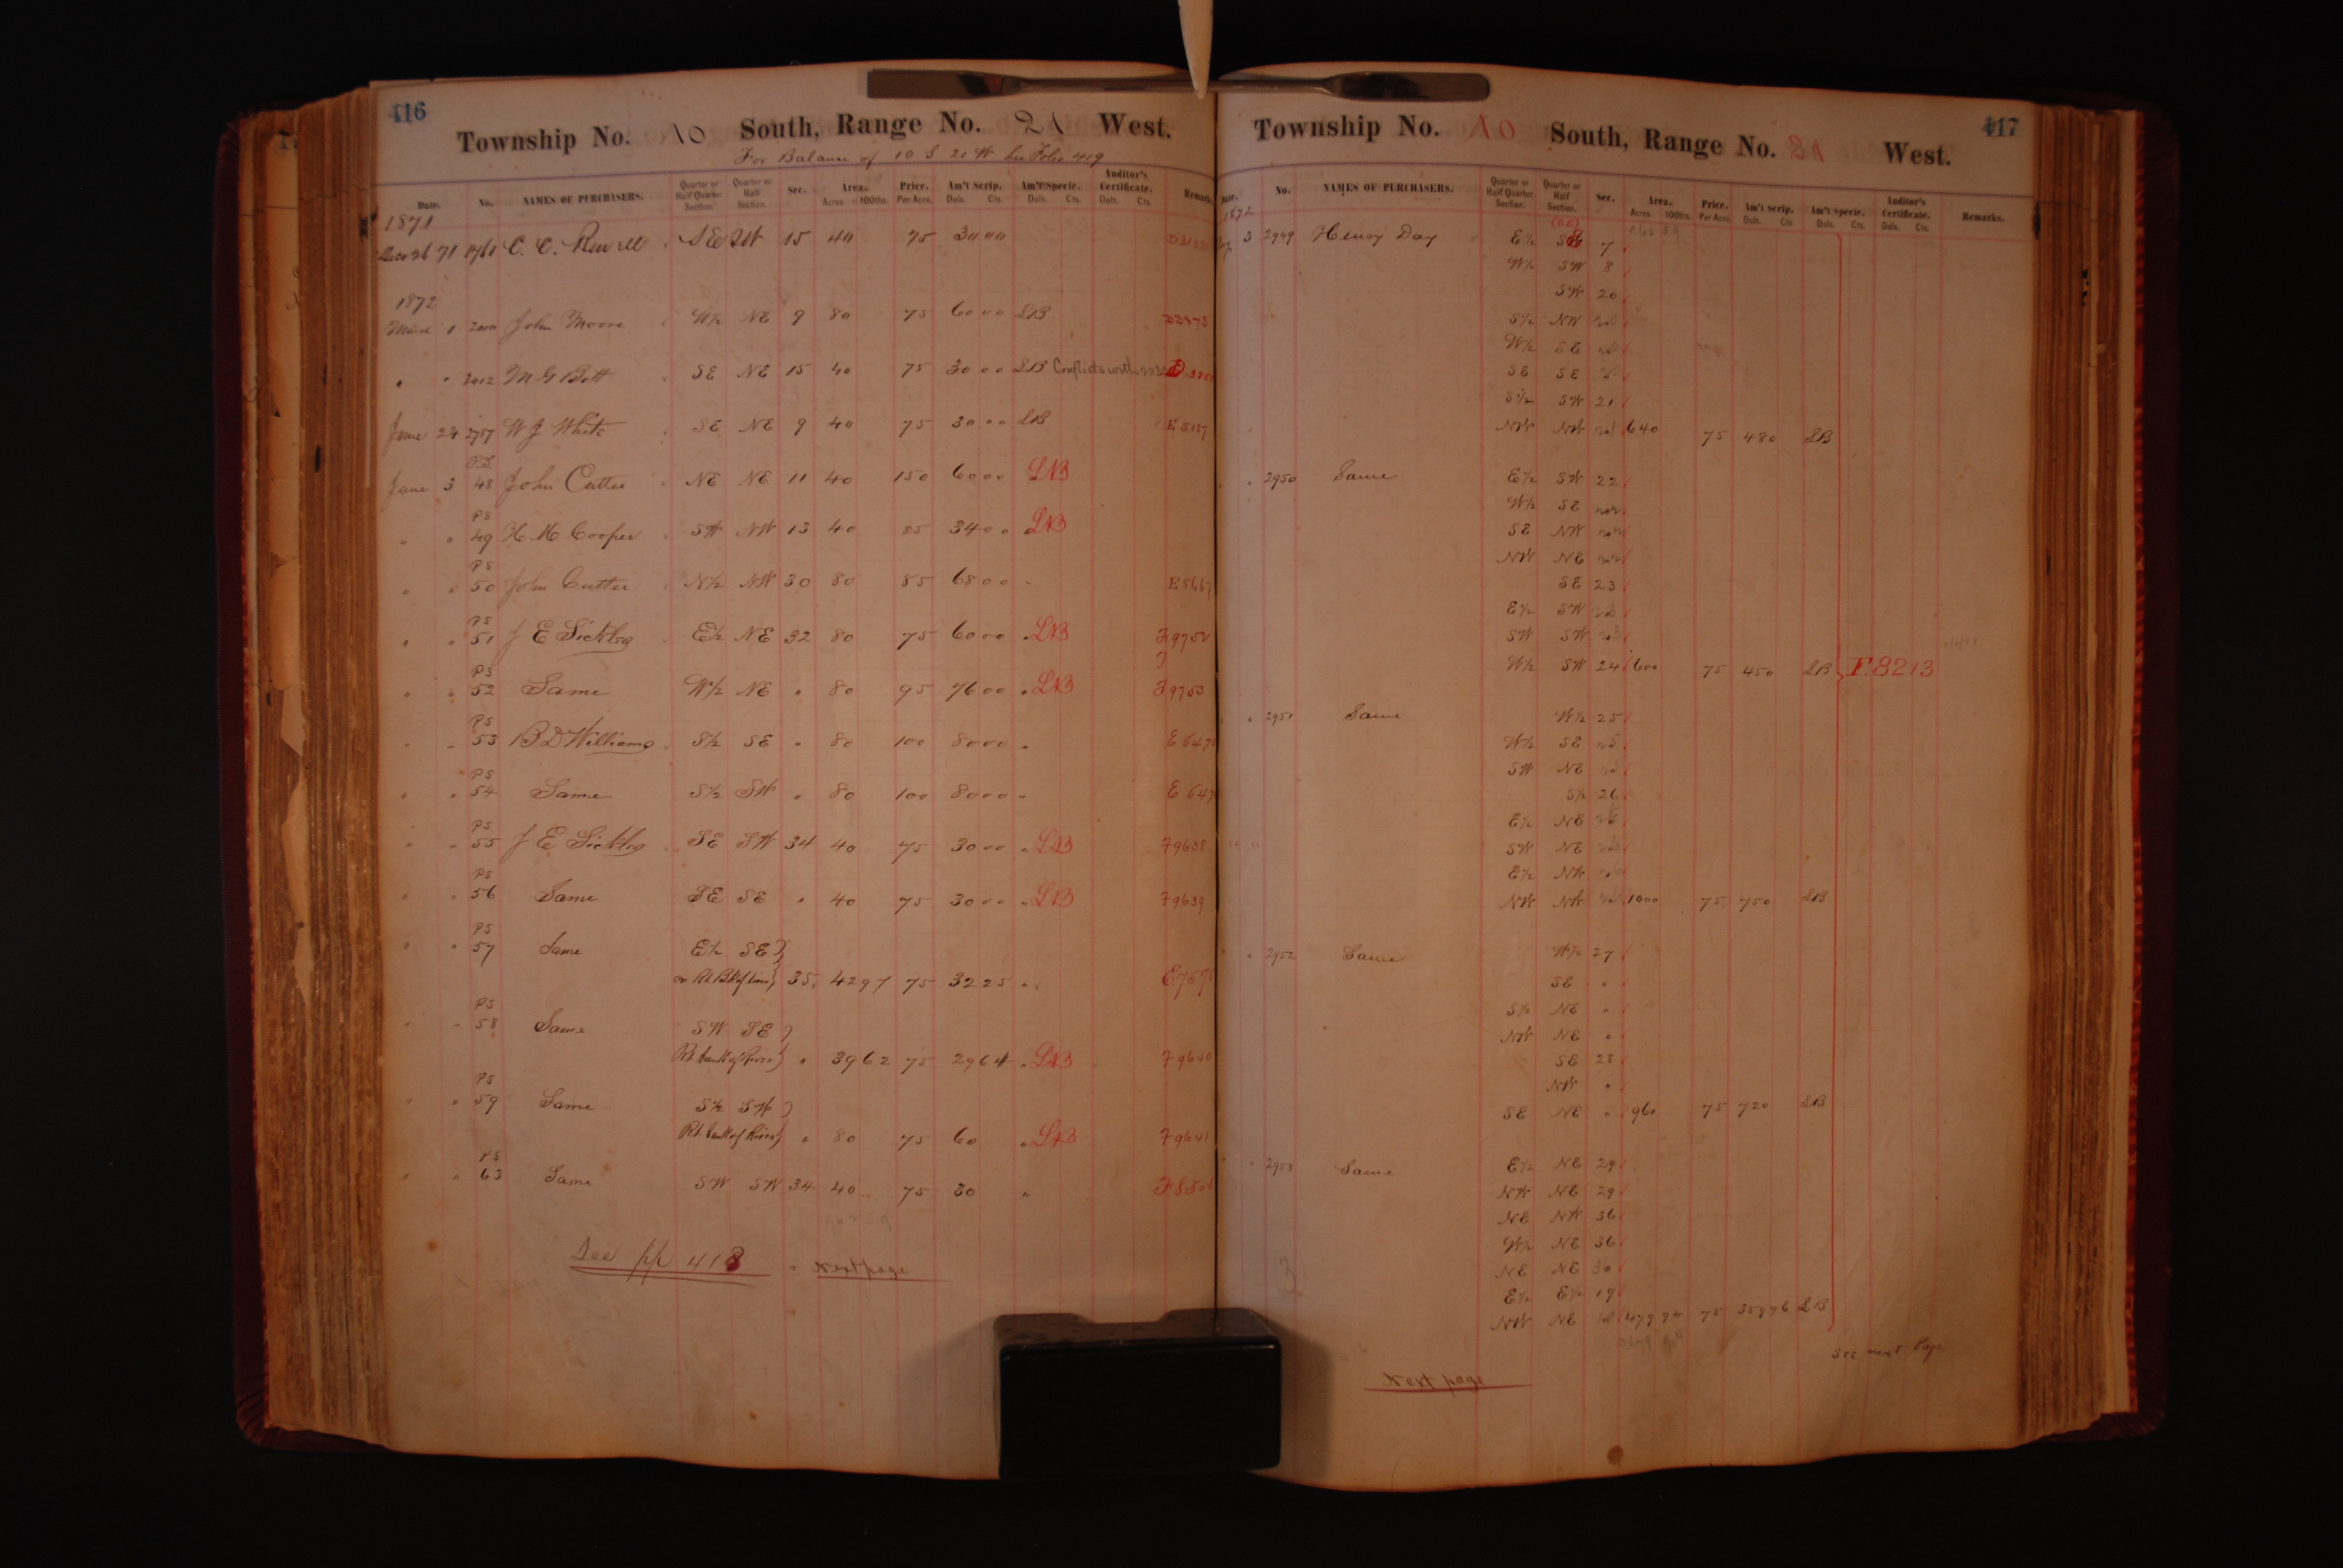 416
Township No. 10 South, Range No. 21 West.
For Balance of 10 S 21 W See Folio 419
Date. No. NAMES OF PURCHASERS. Quarter or Half Quarter Section. Quarter or Half Section. Sec. Area. Acres 100ths. Price. Per Acre. Am't Scrip. Dols. Cts. Am't Specie. Dols. Cts. Auditor's Certificate. Dols. Cts. Remarks
1871
26 71 C. C. SE 15 40 75 3000
1872
March 1 John Moore W½ NE 9 80 75 6000 LB
" " 2012 M G Bott SE NE 15 40 75 3000 LB Conflicts with
June 24 2757 W J White SE NE 9 40 75 3000 LB E5117
PS
June 3 48 John Cutter NE NE 11 40 150 6000 LB
PS
" " 49 H M Cooper SW NW 13 40 85 3400 " LB
PS
" " 50 John Cutter N½ NW 30 80 85 6800 "
PS
" " 51 J E Sickles E½ NE 32 80 75 6000 " LB F9752
PS
" " 52 Same W½ NE " 80 95 7600 " LB F9753
PS
" " 53 B D Williams S½ SE " 80 100 8000 "
PS
" " 54 Same S½ SW " 80 100 8000 "
PS
" " 55 J E Sickles SE SW 34 40 75 3000 " LB F9638
PS
" " 56 Same SE SE " 40 75 3000 " LB F9639
PS
" " 57 Same E½ SE }
on Rt. Bk of River } 35 4297 75 3225 "
PS
" " 58 Same SW SE }
Rt. bank of River } " 3962 75 2964 " LB F9640
PS
" " 59 Same S½ SW }
Rt. bank of River } " 80 75 60 " LB F9641
PS
" " 63 Same SW SW 34 40 75 30 "
See pp 418 " Next page
417
Township No. 10 South, Range No. 21 West.
Date. No. NAMES OF PURCHASERS. Quarter or Half Quarter Section. Quarter or Half Section. Sec. Area. Acres 100ths. Price. Per Acre. Am't Scrip. Dols. Cts Am't Specie. Dols. Cts. Auditor's Certificate. Dols. Cts. Remarks.
1872
3 2949 Henry Day E½ 7
W½ SW 8
SW 20
S½ NW
W½ SE
SE SE
S½ SW 21
NW NW 640 75 480 LB
" 2950 Same E½ SW 22
W½ SE
SE NW
NW NE
SE 23
E½ SW
SW SW
W½ SW 24 600 75 450 LB F.8213
" " 2951 Same W½ 25
W½ SE
SW NE
S½ 26
E½ NE
SW NE
E½ NW
NW NW 1000 75 750 LB
" " 2952 Same W½ 27
SE "
S½ NE "
NW NE "
SE 28
NW "
SE NE " 960 75 720 LB
" " 2953 Same E½ NE 29
NW NE 29
NE NW 36
W½ NE 36
NE NE
E½ E½ 19
NW NE 75 LB
See next Page
Next page